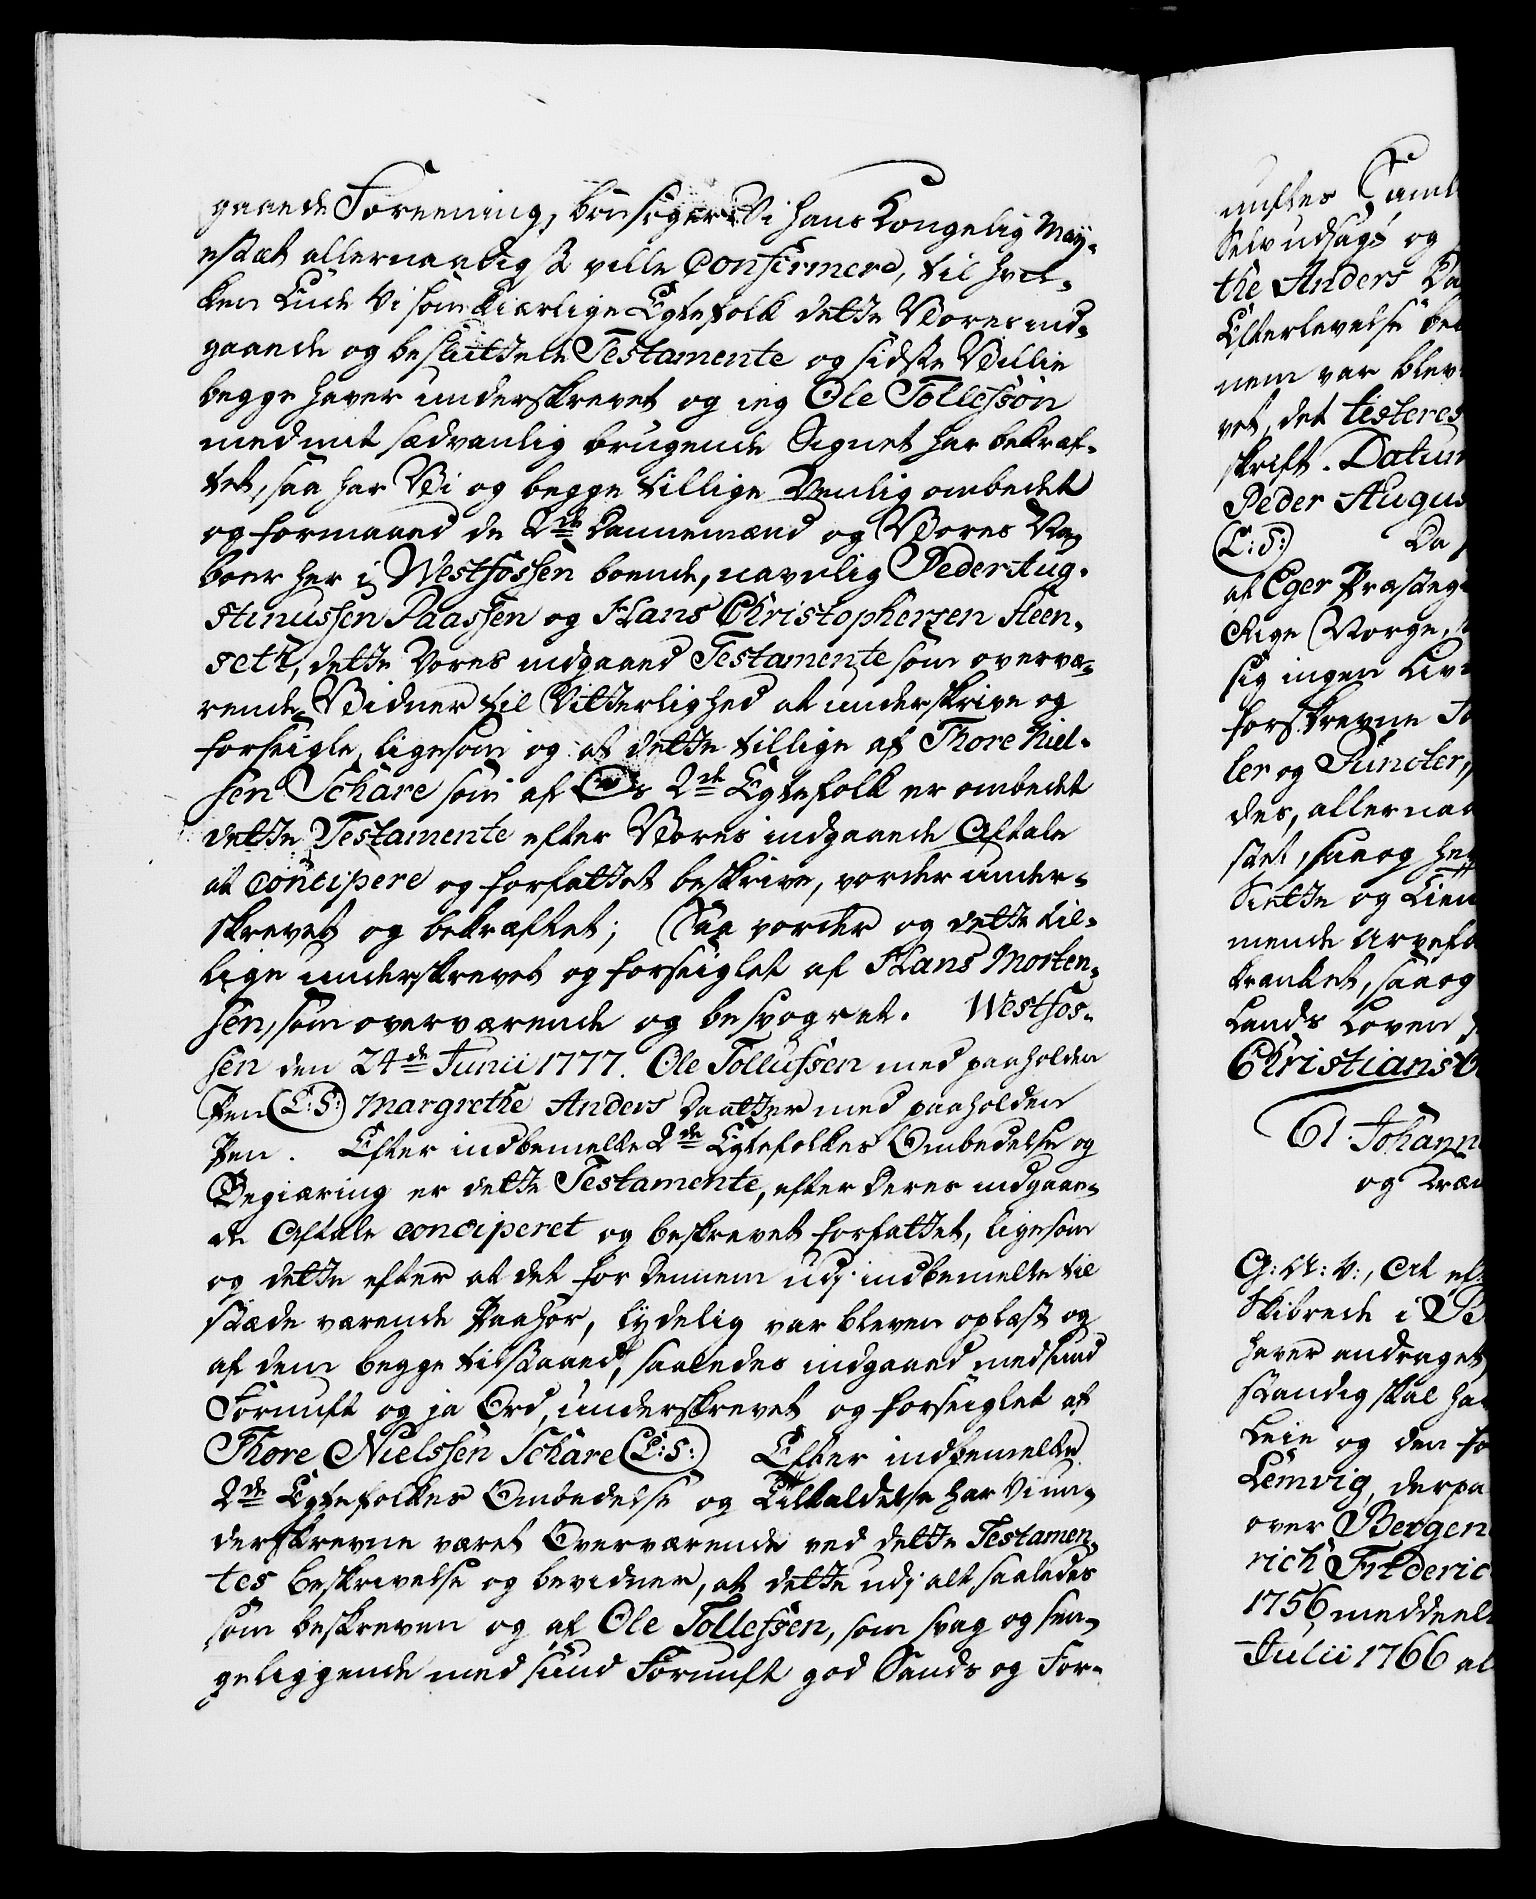 gaaende Foreening, bønsøger Vi Hans Kongelig May-
estæt allernaadigst ville Confirmere, til hvil-
ken Ende Vi som kiærlige Egtefolk dette Vores ind-
gaaende og besluttede Testamente og sidste Villie
begge haver underskrevet og ieg Ole Tollefsøn
med mit sædvanlig brugende Signet har bekræf-
tet, saa har Vi og begge tillige Venlig ombedet
og formaaed de 2de Dannemænd og Vores Na-
boer her i Westfossen boende, navnlig Peder Aug-
stinussen Paassen og Hans Christophersen Steen-
seth, dette Vores indgaaed Testamente som overvæ-
rende Vidner til Vitterlighed at underskrive og
forseigle, ligesom og at dette tillige af Thore Niel-
sen Schare som af Os 2de Egtefolk er ombedet
dette Testamente efter Vores indgaaende Aftale
at concipere og forfattet beskrive, vorder under-
skrevet og bekræftet; Saa vorder og dette til-
lige underskrevet og forseiglet af Hans Morten-
sen, som overværende og besvogret. Westfos-
sen den 24de Junii 1777. Ole Tollufsen med paaholden
Pen (L:S:) Margrethe Anders Daatter med paaholden
Pen. Efter indbemelte 2de Egtefolkes Ombedelse og
Begiæring er dette Testamente, efter deres indgaaen-
de Aftale conciperet og beskrevet forfattet, ligesom
og dette efter at det for dennem udj indbemelte til
stæde værende Paahør, lydelig var bleven oplæst og
af dem begge tilstaaed, saaledes indgaaed med sund
Fornuft og ja Ord, underskrevet og forseiglet af
Thore Nielssen Schare (L:S:) Efter indbemelte
2de Egtefolkes Ombedelse og Tilkaldelse har Vi un-
derskrevne været Overværende ved dette Testamen-
tes beskrivelse og bevidner, at dette udj alt saaledes
som beskreven og af Ole Tollefsen, som svag og sen-
geliggende med sund Fornuft god Sands og For-
nuftes Saml
Selv udsagt og
the Anders Da
Efterlevelse be
nem var blev
vet, det testeres
skrift. Datum
Peder Augus
(L:S:) Da
at Eger Præsteg
Rige Norge,
sig ingen Liv
forskrevne
ler og Puncter,
des, allernaa
stet, saa og he
Sætte og Lien
mende Arvefa
krænket, saa og
Lands Loven
Christiansb
Johann
og Træn
G: A: V:, At eft
Skibrede i B
haver andraget,
standig skal ha
Leie og den fo
Lemvig, derpaa
over Bergen
rich Frideric
1756 meddeel
Julii 1766 al